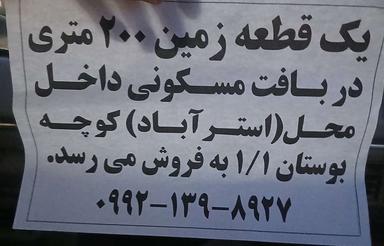 یک قطعه زمین ۲۰۰ متری
در بافت مسکونی داخل
محل(استرآباد) کوچه
بوستان ۱/۱ به فروش می رسد.
۰۹۹۲-۱۳۹-۸۹۲۷